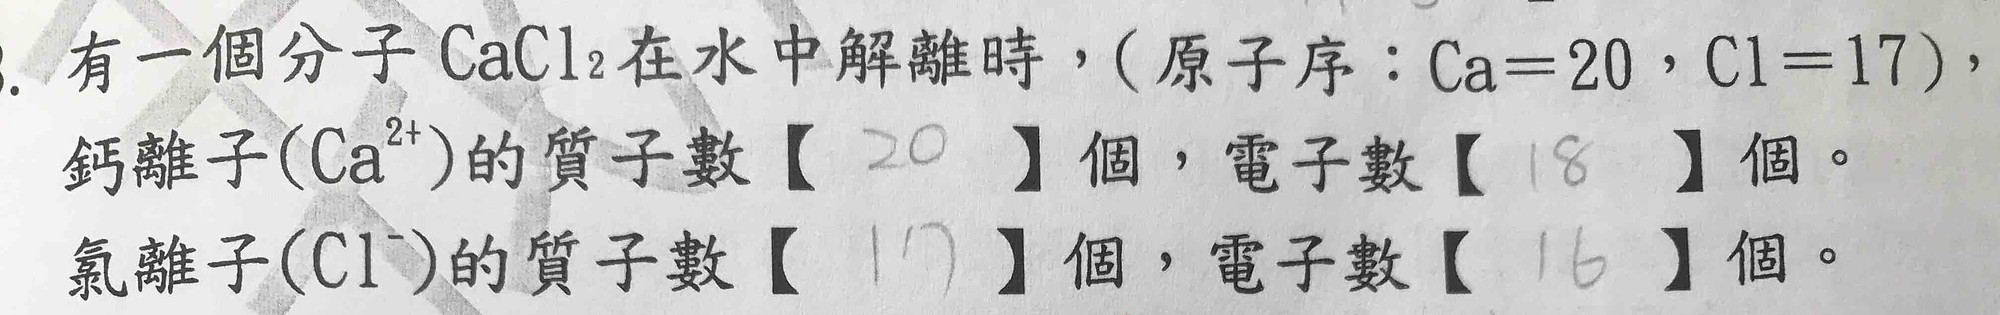 3. 有一個分子 CaCl₂ 在水中解離時，(原子序：Ca＝20，Cl＝17)，
鈣離子(Ca²⁺)的質子數【 20 】個，電子數【 18 】個。
氯離子(Cl⁻)的質子數【 17 】個，電子數【 16 】個。